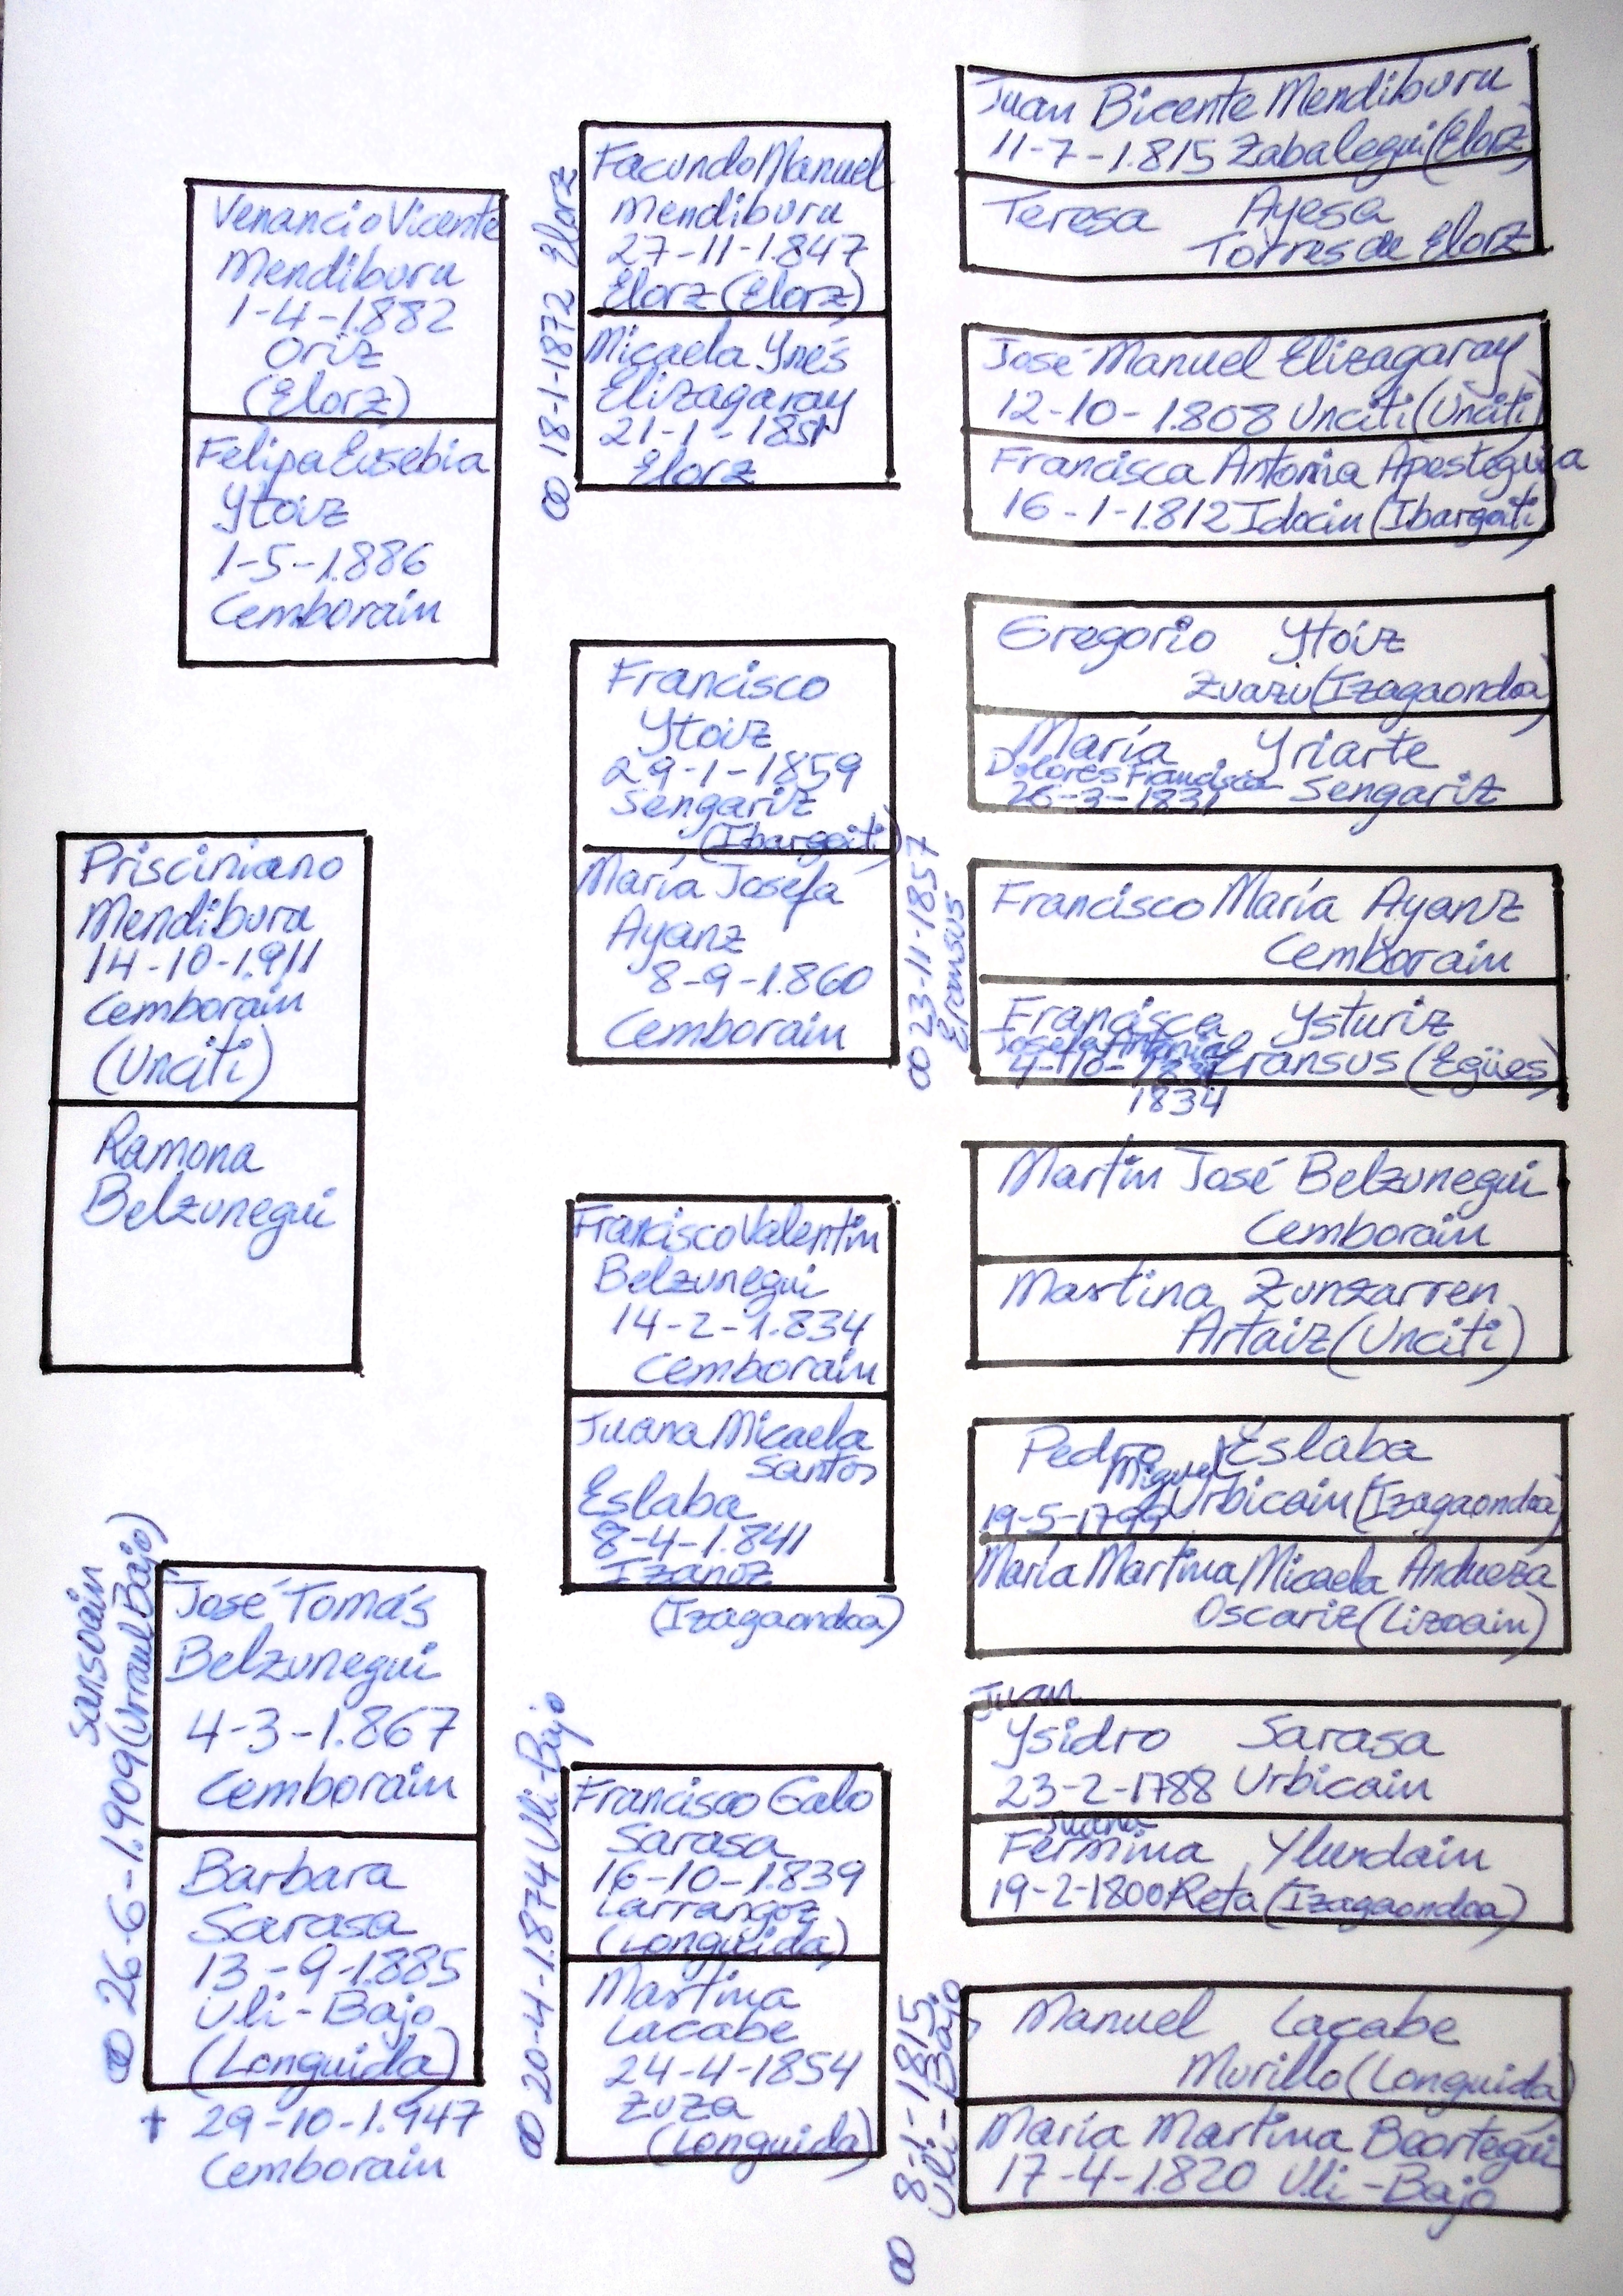 Prisciniano
Mendiburu
14-10-1.911
Cemborain
(Unciti)
Ramona
Belzunegui
Venancio Vicente
Mendiburu
1-4-1.882
Oriz
(Elorz)
Felipa Eusebia
Ytoiz
1-5-1.886
Cemborain
José Tomás
Belzunegui
4-3-1.867
Cemborain
Barbara
Sarasa
13-9-1.885
Uli-Bajo
(Longuida)
† 29-10-1.947
Cemborain
∞ 26-6-1.909 (Urraul Bajo)
Sansoain
Facundo Manuel
Mendiburu
27-11-1.847
Elorz (Elorz)
Micaela Ynés
Elizagaray
21-1-1851
Elorz
∞ 18-1-1872 Elorz
Francisco
Ytoiz
29-1-1859
Sengariz
(Ibargoiti)
María Josefa
Ayanz
8-9-1.860
Cemborain
Francisco Valentin
Belzunegui
14-2-1.834
Cemborain
Juana Micaela
Santos
Eslaba
8-4-1.841
Izanoz
(Izagaondoa)
Francisco Galo
Sarasa
16-10-1.839
Larrangoz
(Longuida)
Martina
Lacabe
24-4-1854
Zuza
(Longuida)
∞ 20-4-1.874 Uli-Bajo
Juan Bicente Mendiburu
11-7-1.815 Zabalegui (Elorz)
Teresa Ayesa
Torres de Elorz
José Manuel Elizagaray
12-10-1.808 Unciti (Unciti)
Francisca Antonia Apesteguia
16-1-1.812 Idocin (Ibargoiti)
Gregorio Ytoiz
Zuazu (Izagaondoa)
María Yriarte
Dolores Francisca
26-3-1831 Sengariz
Francisco María Ayanz
Cemborain
Francisca Ysturiz
Josefa Antonia
4-10- Eransus (Egües)
1834
∞ 23-11-1857
Eransus
Martín José Belzunegui
Cemborain
Martina Zunzarren
Artaiz (Unciti)
Pedro Eslaba
Miguel
19-5-1799 Urbicain (Izagaondoa)
María Martina Micaela Andueza
Oscariz (Lizoain)
Juan
Ysidro Sarasa
23-2-1788 Urbicain
Juana
Fermina Ylundain
19-2-1800 Reta (Izagaondoa)
Manuel Lacabe
Murillo (Longuida)
María Martina Beortegui
17-4-1.820 Uli-Bajo
∞ 8-1-1815
Uli-Bajo